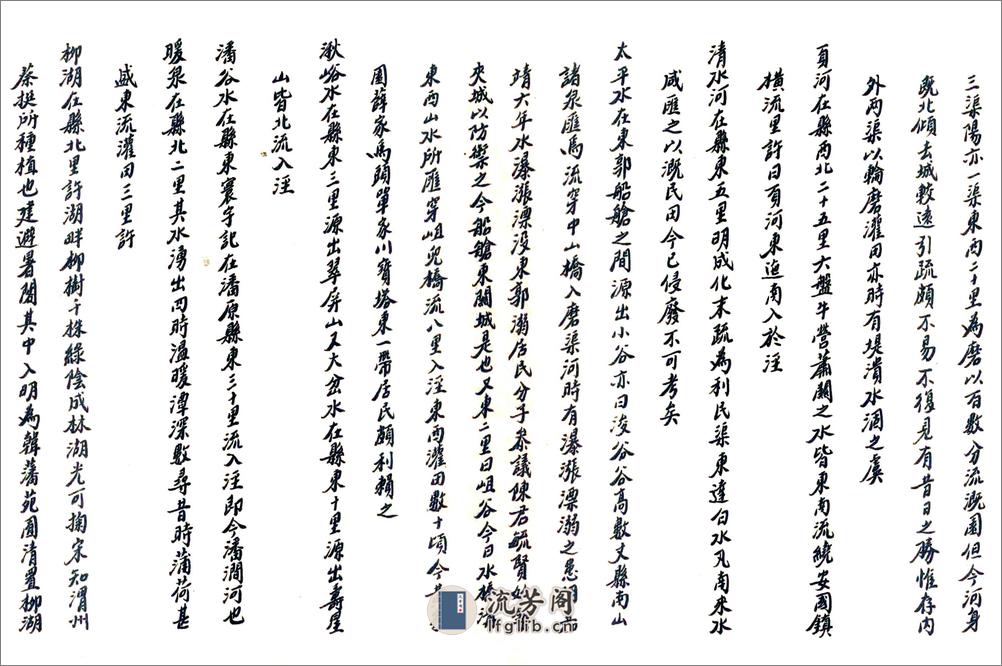 三渠陽亦一渠東西二十里為磨以百數分流溉園但今河身
既北傾去城較遠引疏頗不易不復見有昔日之勝惟存內
外兩渠以輪磨灌田亦時有堤潰水涸之虞
頁河在縣西北二十五里大盤牛營蕭關之水皆東南流繞安國鎮
橫流里許曰頁河東迤南入於涇
清水河在縣東五里明成化末疏為利民渠東達白水凡南來水
咸匯之以溉民田今已侵廢不可考矣
太平水在東郭船艙之間源出小谷亦曰浚谷谷高數丈縣南山
諸泉匯焉流穿中山橋入磨渠河時有瀑漲漂溺之患明
靖六年水瀑漲漂沒東郭溺居民分子參議陳君毓賢
夾城以防禦之今船艙東關城是也又東二里曰岨谷今曰水橋溝
東西山水所匯穿岨兒橋流八里入涇東西灌田數十頃今
園薛家馬頭單家川寶塔東一帶居民頗利賴之
湫峪水在縣東三里源出翠屏山又大岔水在縣東十里源出壽星
山皆北流入涇
潘谷水在縣東寰宇記在潘原縣東三十里流入涇即今潘澗河也
暖泉在縣北二里其水湧出四時溫暖潭深數尋昔時蒲荷甚
盛東流灌田三里許
柳湖在縣北里許湖畔柳樹千株綠陰成林湖光可掬宋知渭州
蔡挺所種植也建避暑閣其中入明為韓藩苑囿清置柳湖
流芳阁
lfglib.cn